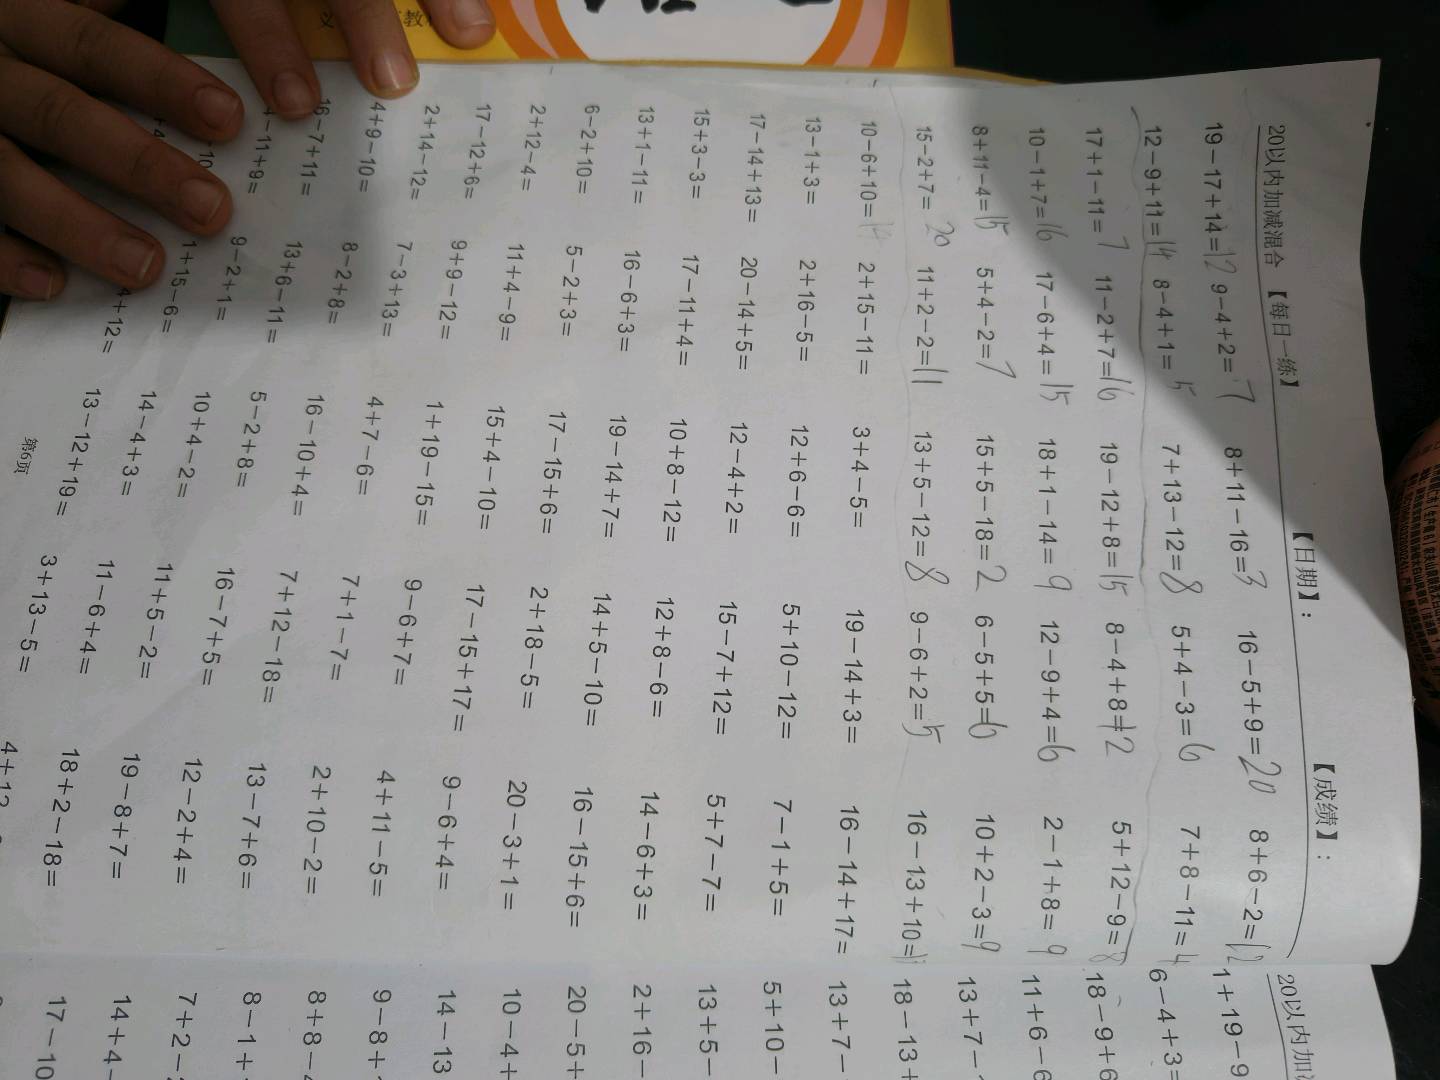 20以内加减混合 【每日一练】 【日期】: 【成绩】:
19-17+14=12 9-4+2=7 8+11-16=3 16-5+9=20 8+6-2=12
12-9+11=14 8-4+1=5 7+13-12=8 5+4-3=6 7+8-11=4
17+1-11=7 11-2+7=16 19-12+8=15 8-4+8=12 5+12-9=8
10-1+7=16 17-6+4=15 18+1-14=9 12-9+4=6 2-1+8=9
8+11-4=15 5+4-2=7 15+5-18=2 6-5+5=6 10+2-3=9
15-2+7=20 11+2-2=11 13+5-12=8 9-6+2=5 16-13+10=
10-6+10=14 2+15-11= 3+4-5= 19-14+3= 16-14+17=
13-1+3= 2+16-5= 12+6-6= 5+10-12= 7-1+5=
17-14+13= 20-14+5= 12-4+2= 15-7+12= 5+7-7=
15+3-3= 17-11+4= 10+8-12= 12+8-6= 14-6+3=
13+1-11= 16-6+3= 19-14+7= 14+5-10= 16-15+6=
6-2+10= 5-2+3= 17-15+6= 2+18-5= 20-3+1=
2+12-4= 11+4-9= 15+4-10= 17-15+17= 9-6+4=
17-12+6= 9+9-12= 1+19-15= 9-6+7= 4+11-5=
2+14-12= 7-3+13= 4+7-6= 7+1-7= 2+10-2=
4+9-10= 8-2+8= 16-10+4= 7+12-18= 13-7+6=
16-7+11= 13+6-11= 5-2+8= 16-7+5= 12-2+4=
-11+9= 9-2+1= 10+4-2= 11+5-2= 19-8+7=
1+15-6= 14-4+3= 11-6+4= 18+2-18=
4+12= 13-12+19= 3+13-5= 4+12
第6页
20以内加
1+19-9
6-4+3=
18-9+6
11+6-6
13+7-
18-13+
13+7-
5+10-
13+5-
2+16-
20-5+
10-4+
14-13
9-8+
8+8-
8-1+
7+2-
14+4-
17-10